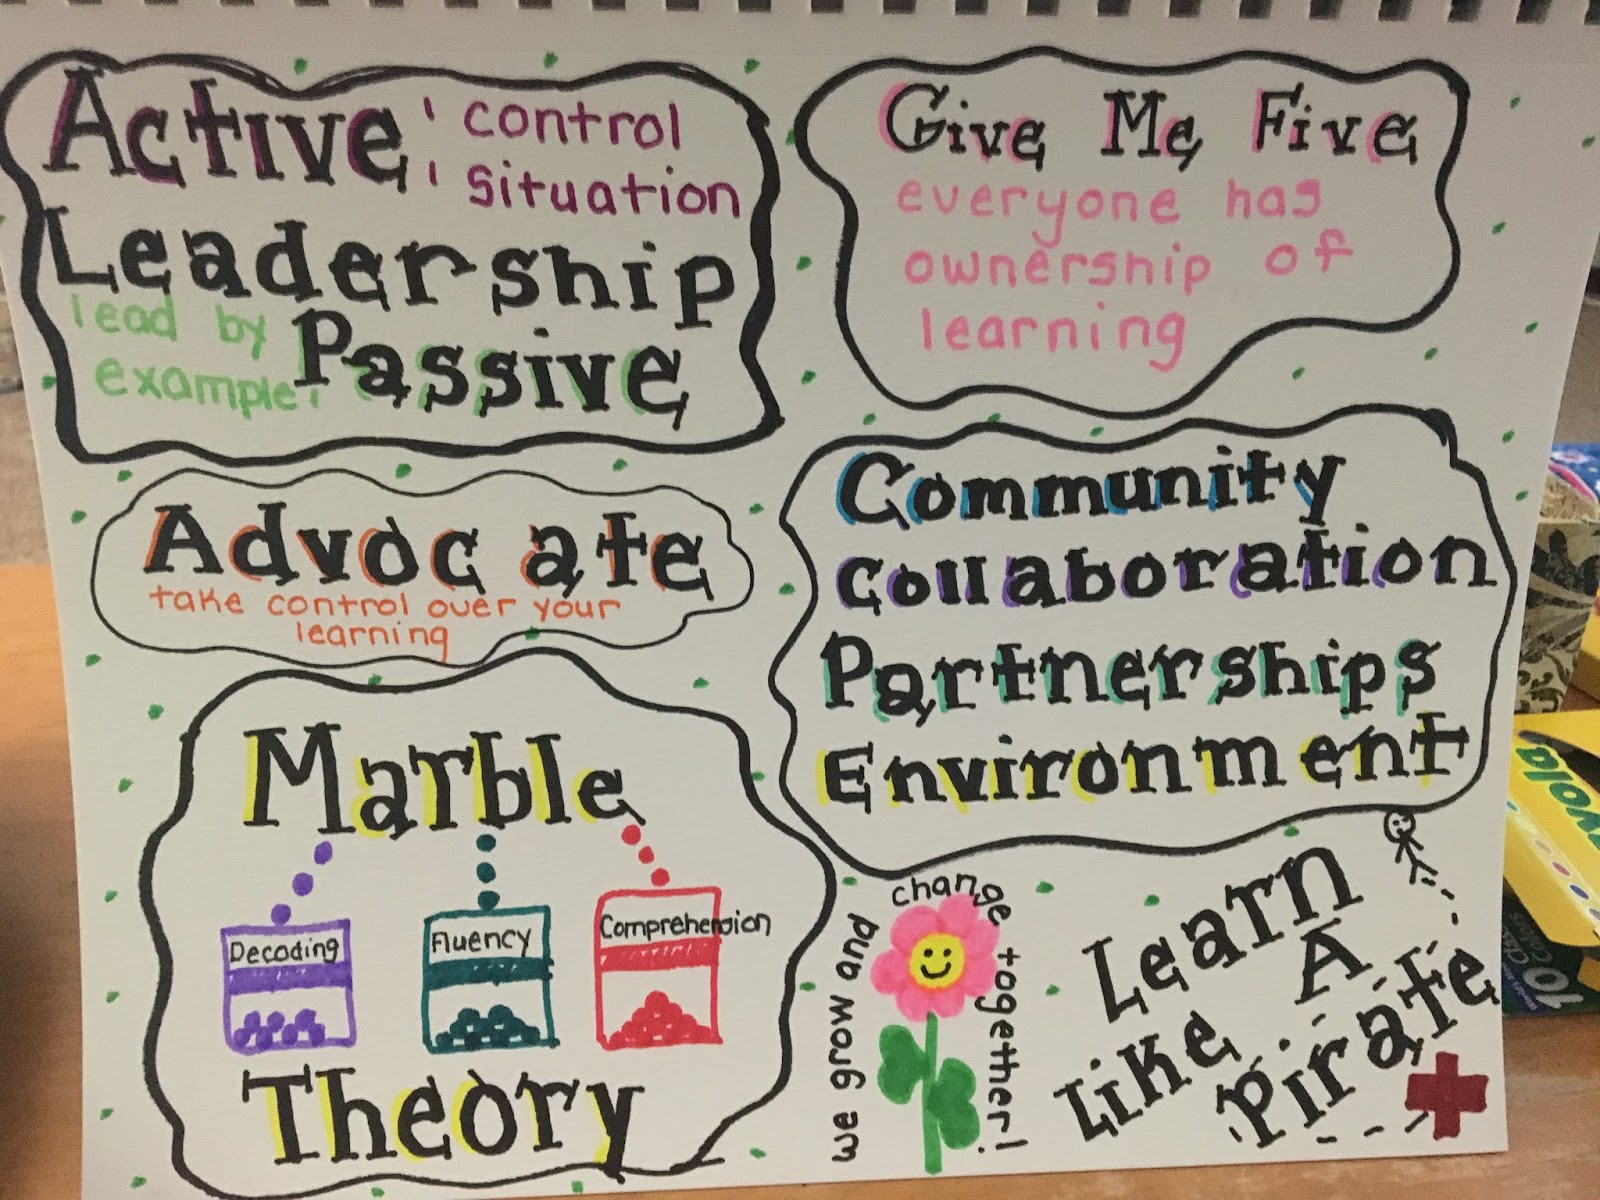 Active: control
situation
Leadership
lead by
example: Passive
Give Me Five
everyone has
ownership of
learning
Advocate
take control over your
learning
Community
Collaboration
Partnerships
Environment
Marble
Decoding
Fluency
Comprehension
Theory
we grow and change together!
Learn
Like A
Pirate
yola
10